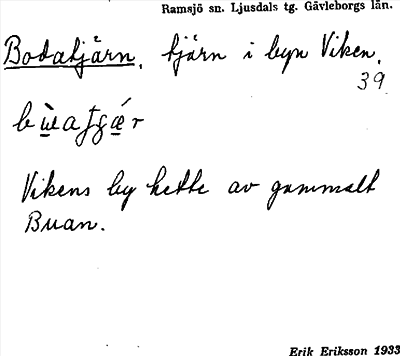 Ramsjö sn. Ljusdals tg. Gävleborgs län.
Bodatjärn, tjärn i byn Viken.
39
Vikens by hette av gammalt
Buan.
Erik Eriksson 1933